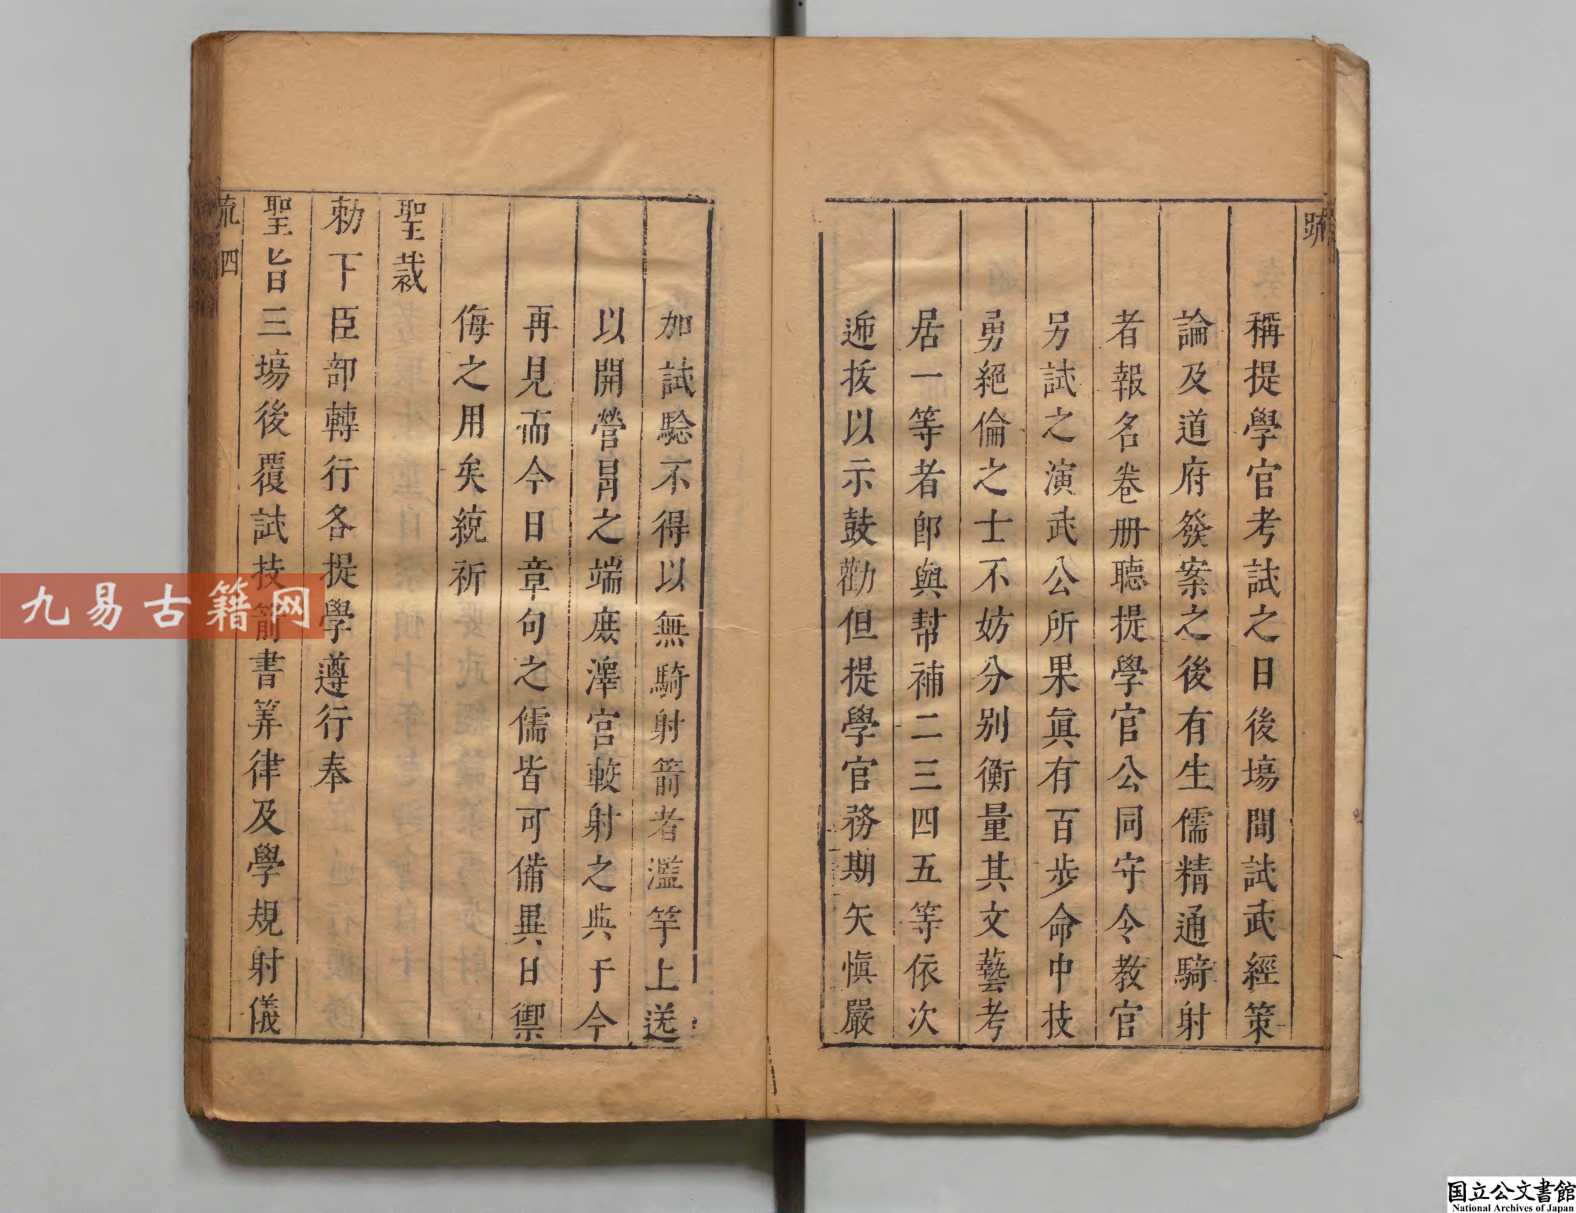 疏
稱提學官考試之日後塲間試武經策
論及道府發案之後有生儒精通騎射
者報名卷册聽提學官公同守令教官
另試之演武公所果眞有百步命中技
勇絕倫之士不妨分别衡量其文藝考
居一等者卽與幫補二三四五等依次
逓拔以示鼓勸但提學官務期矢愼嚴
加試騐不得以無騎射箭者濫竽上送
以開營冐之端庻澤宫較射之典于今
再見而今日章句之儒皆可備異日禦
侮之用矣統祈
聖裁
勅下臣部轉行各提學遵行奉
聖旨三塲後覆試技箭書筭律及學規射儀
疏 四
九易古籍网
国立公文書館
National Archives of Japan